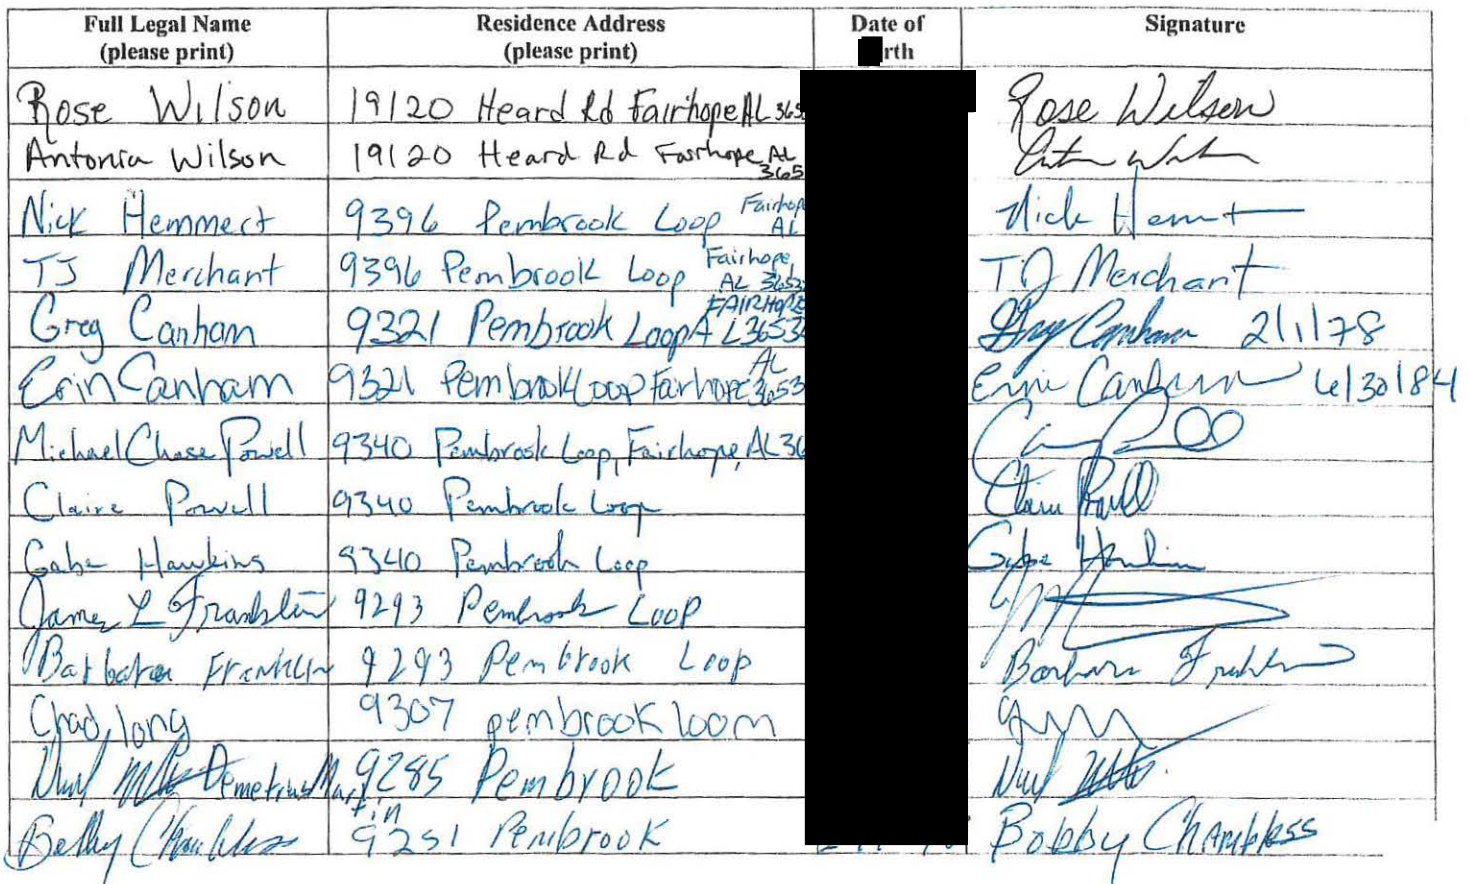 Full Legal Name (please print) Residence Address (please print) Date of rth Signature
Rose Wilson 19120 Heard Rd Fairhope AL 365 Rose Wilson
Antonia Wilson 19120 Heard Rd Fairhope AL 365
Nick Hemmert 9396 Pembrook Loop Fairhop AL Nick Hemt
TJ Merchant 9396 Pembrook Loop Fairhope, AL 3653 TJ Merchant
Greg Canham 9321 Pembrook Loop FAIRHOPE AL 3653 Greg Canham 2/1/78
Erin Canham 9321 Pembrook Loop Fairhope AL 3653 Erin Canham 6/30/84
Michael Chase Powell 9340 Pembrook Loop, Fairhope, AL 36
Claire Powell 9340 Pembrook Loop Claire Powell
Gabe Hawkins 9340 Pembrook Loop Gabe Hawkins
James L Franklin 9293 Pembrook Loop
Barbara Franklin 9293 Pembrook Loop Barbara Franklin
Chad, long 9307 pembrook loom
Demetrius Martin 9285 Pembrook
Bobby Chambless 9251 Pembrook Bobby Chambless